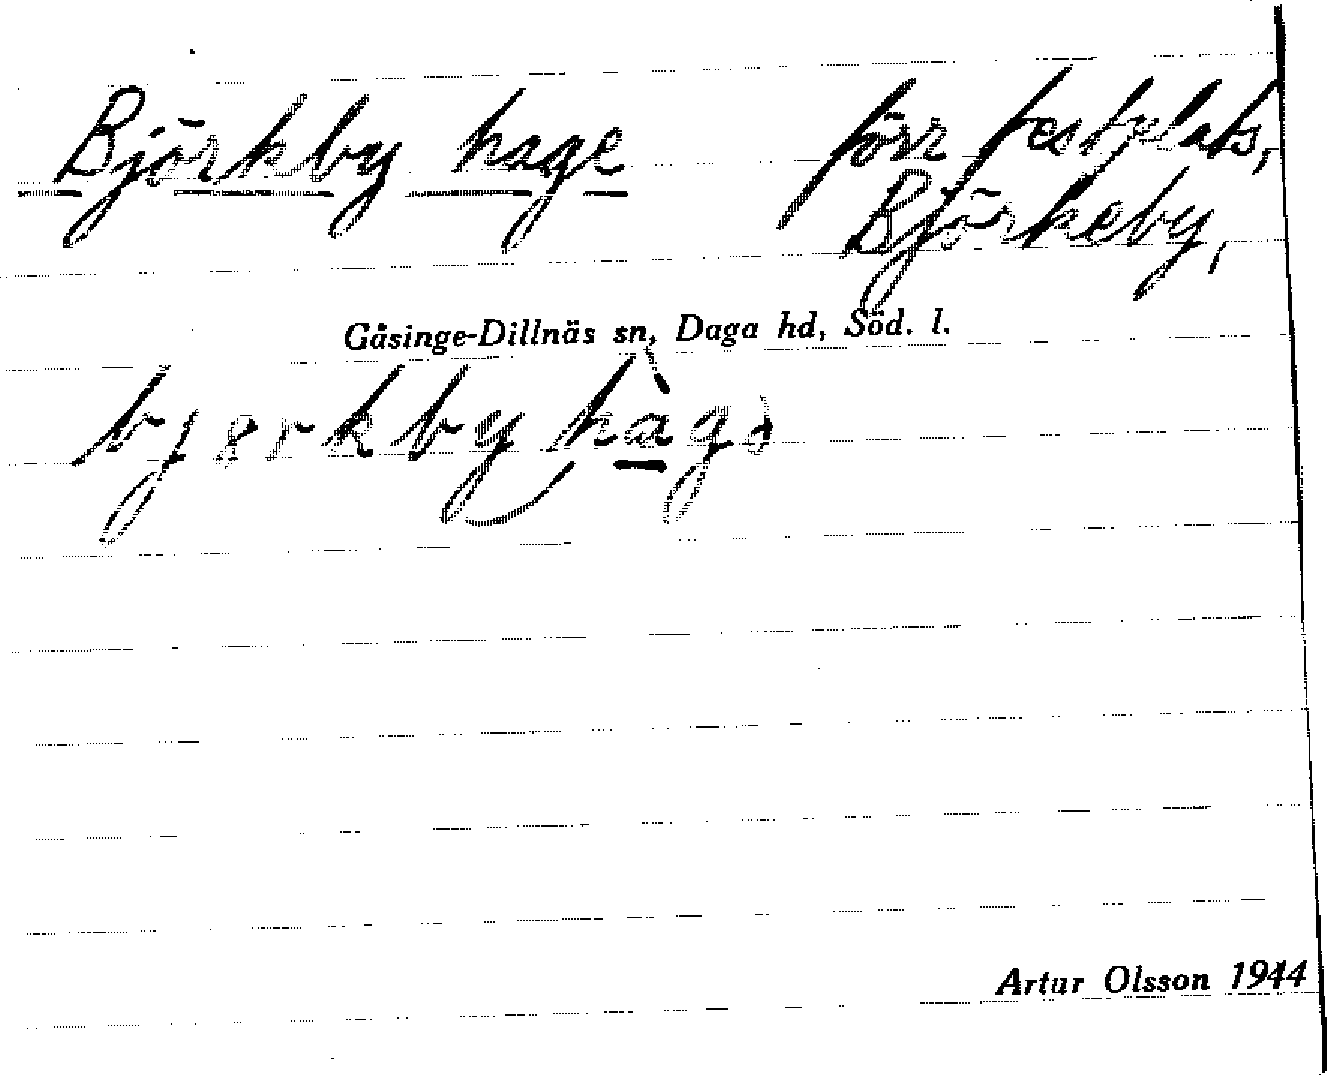 Björkby hage förr festplats,
Björkeby,
Gåsinge-Dillnäs sn, Daga hd, Söd. l.
Artur Olsson 1944